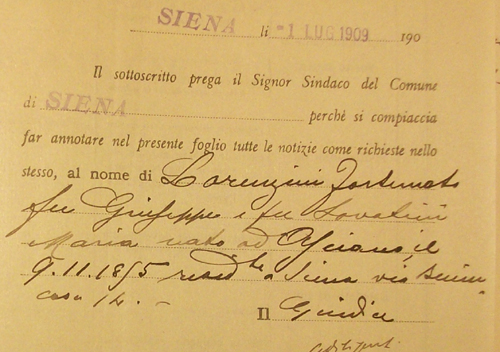 SIENA li -1 LUG 1909 190
Il sottoscritto prega il Signor Sindaco del Comune
di SIENA perchè si compiaccia
far annotare nel presente foglio tutte le notizie come richieste nello
stesso, al nome di Lorenzini Fortunato
fu Giuseppe e fu Lovatini
Maria nato ad Asciano, il
9.11.1855 resid.te a Siena via
casa 12. -
Il Giudice